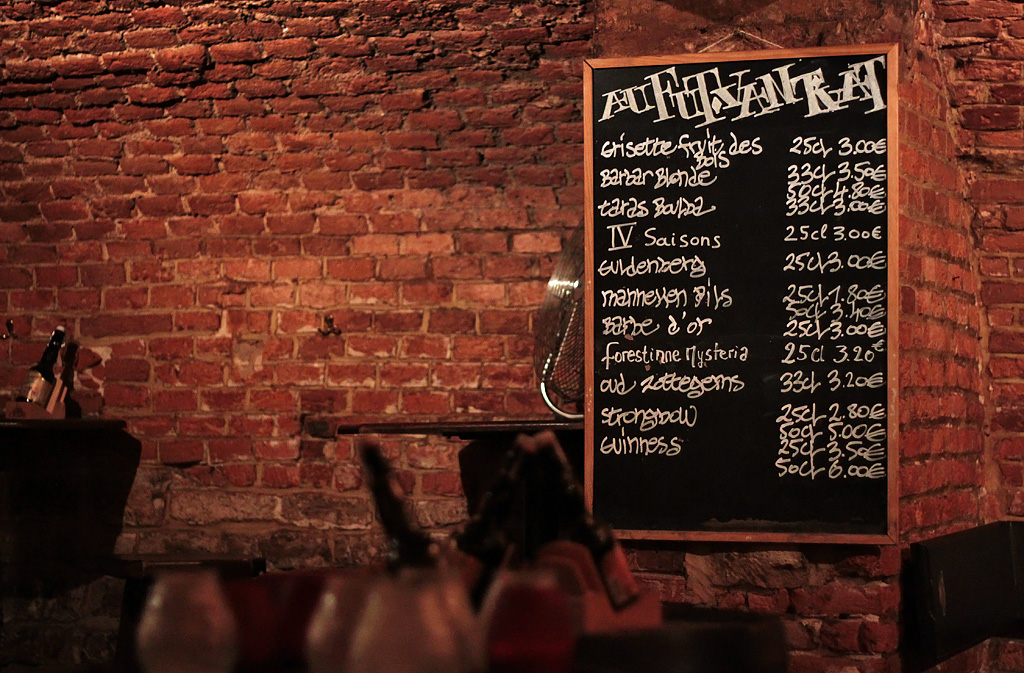 AU FUT XANTRAT
Grisette fruit des 25cl 3.00€
Bois
Barbar Blonde 33cl 3.50€
50cl 4.80€
taras Boulba 33cl 3.00€
IV Saisons 25cl 3.00€
Guldenberg 25cl 3.00€
mannesen Pils 25cl 1.80€
50cl 3.40€
Barbe d'or 25cl 3.00€
forestinne Mysteria 25cl 3.20€
oud zottegems 33cl 3.20€
strongbow 25cl 2.80€
50cl 5.00€
Guinness 25cl 3.50€
50cl 6.00€